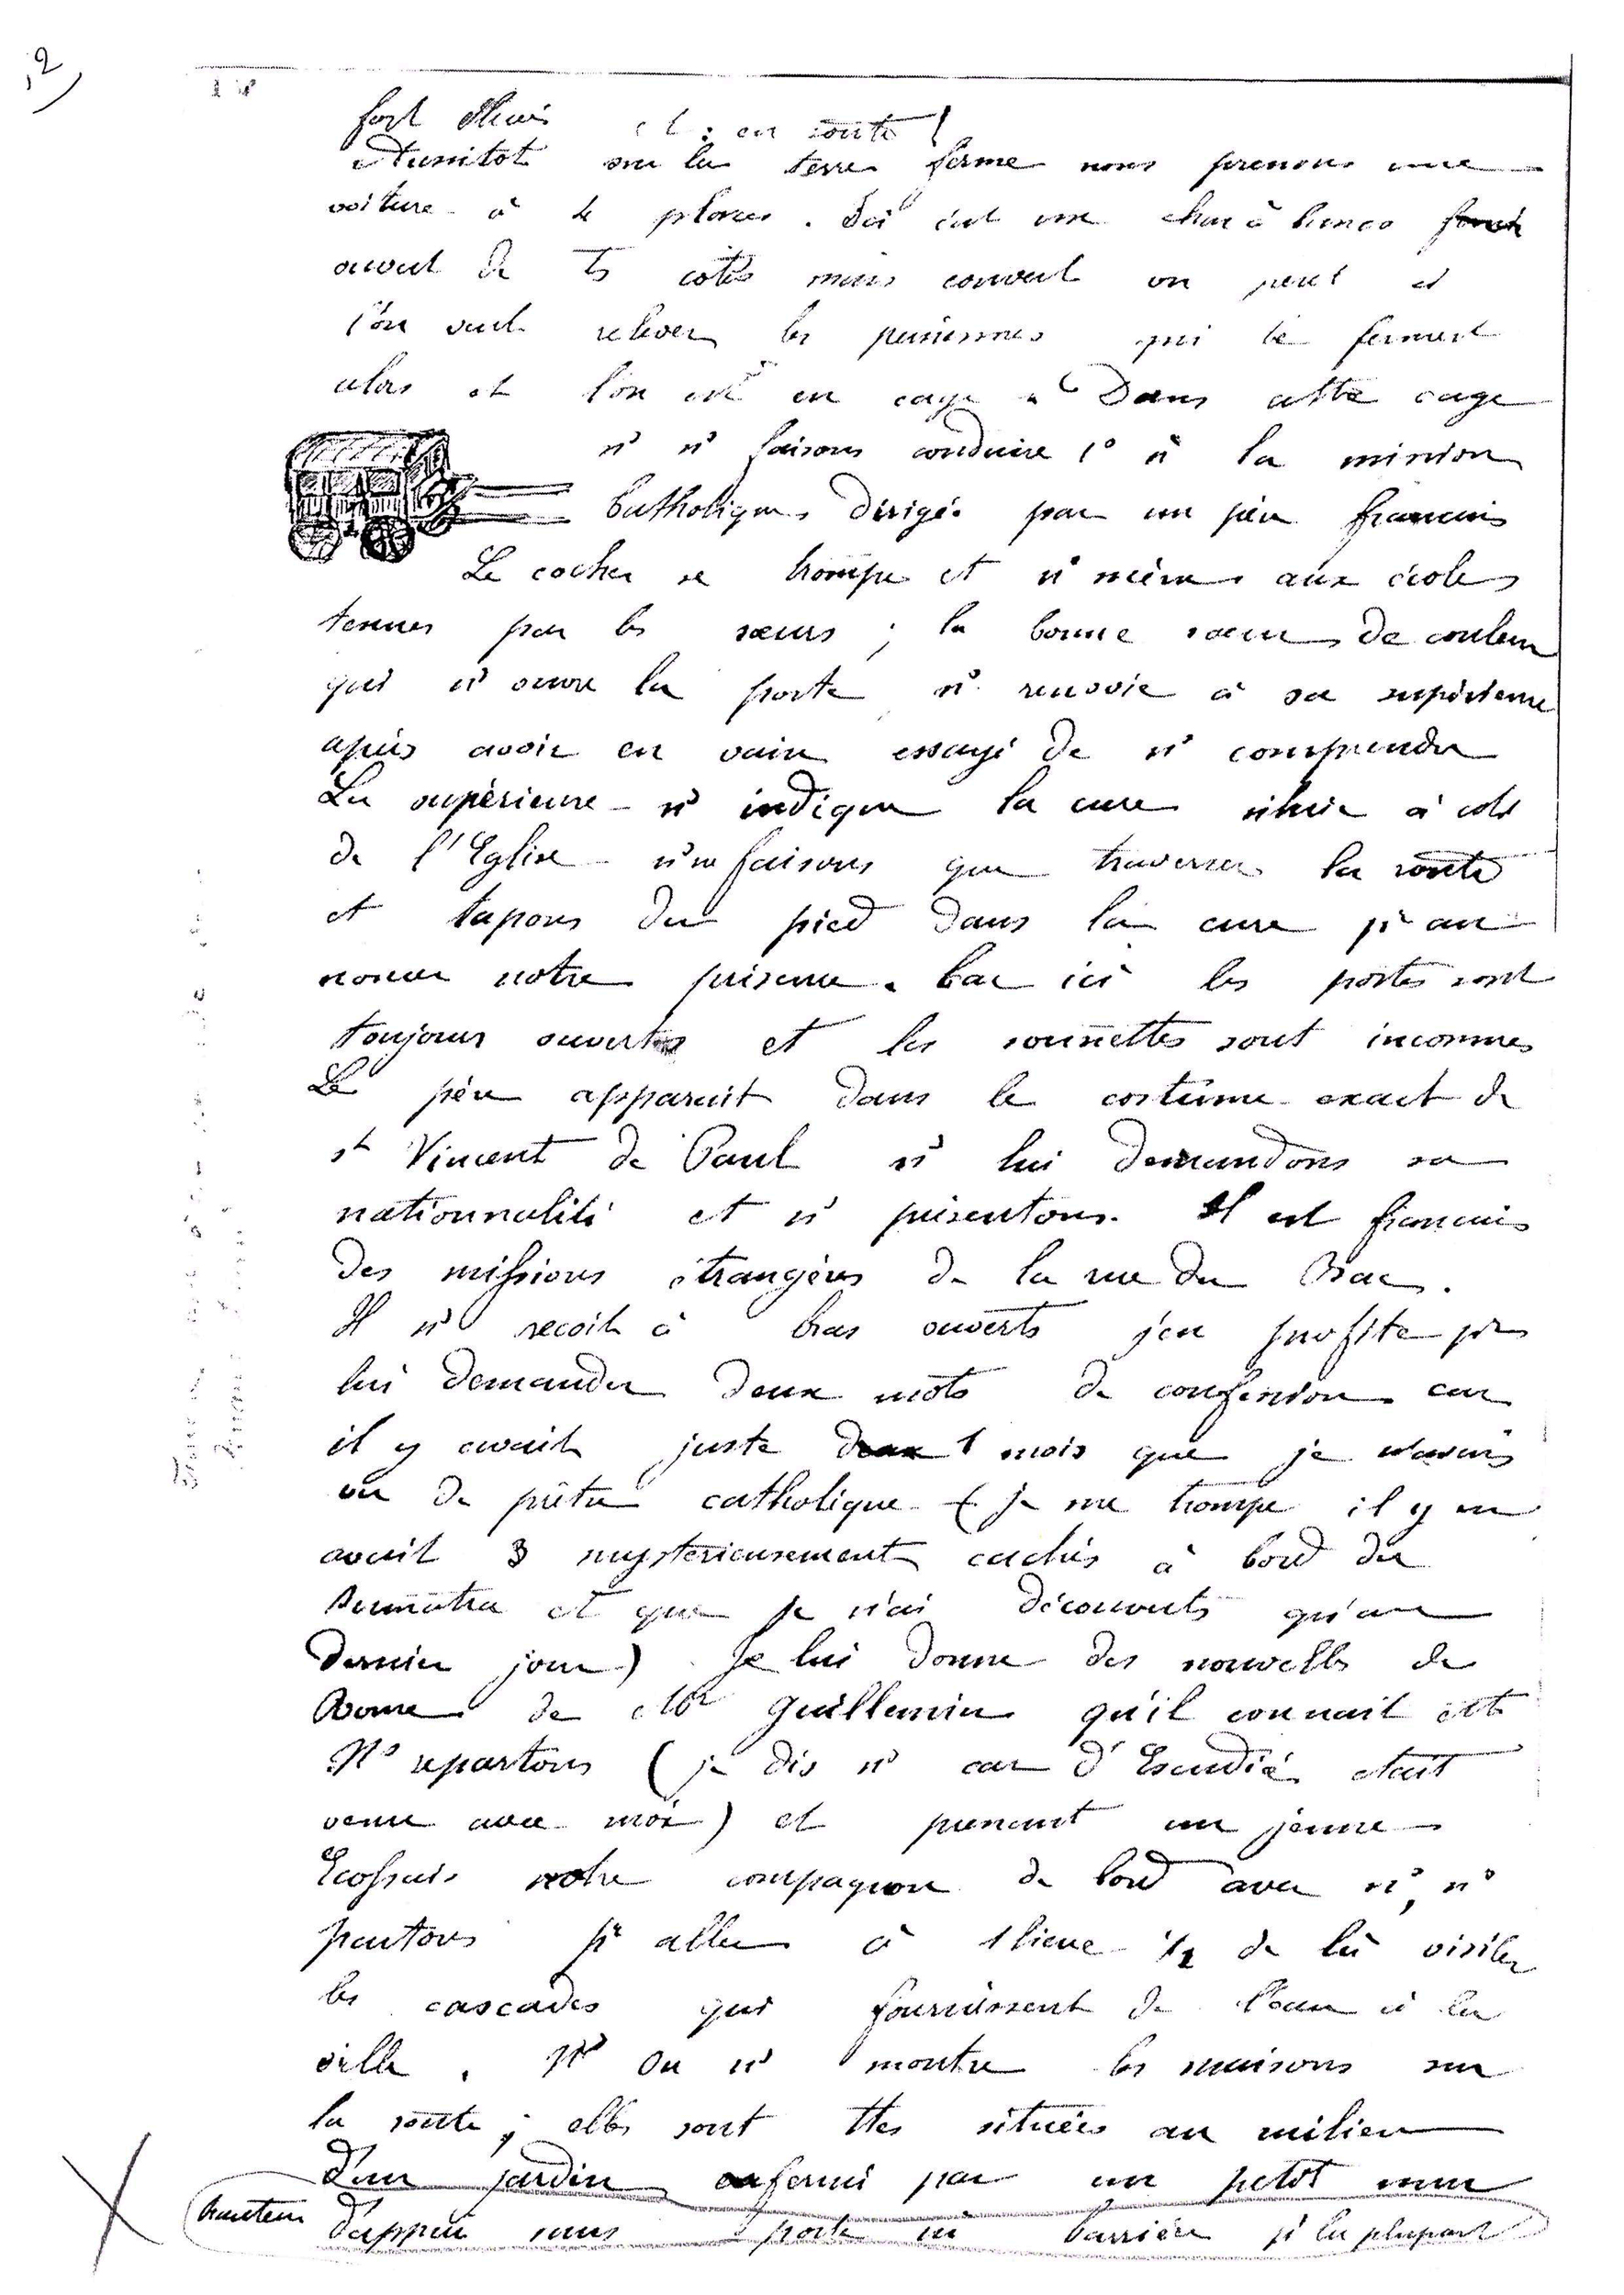 2)
fort et : en route !
Aussitot sur la terre ferme nous prenons une
voiture à 4 places. Ici c'est un char à bancs
ouvert de ts cotés mais couvert on peut et
l'on veut relever les persiennes qui le ferment
alors et l'on est en cage. Dans cette cage
ns ns faisons conduire 1° à la mission
Catholique, dirigée par un père francais
Le cocher se trompe et ns mène aux écoles
tenues par les sœurs ; la bonne sœur de couleur
qui ns ouvre la porte ns renvoie à sa supérieure
après avoir en vain essayé de ns comprendre
La supérieure ns indique la cure située à coté
de l'Eglise ns ne faisons que traverser la route
et tapons du pied dans la cure pr an
noncer notre présence. Car ici les portes sont
toujours ouvertes et les sonnettes sont inconnues
Le père apparait dans le costume exact de
st Vincent de Paul ns lui demandons sa
nationnalité et ns présentons. Il est francais
des missions étrangères de la rue du Bac.
Il ns recoit à bras ouverts j'en profite pr
lui demander deux mots de confession car
il y avait juste deux 1 mois que je n'avais
vu de prêtre catholique (je me trompe il y en
avait 3 mysterieusement cachés à bord du
Sumatra et que je n'ai découverts qu'au
dernier jour) Je lui donne des nouvelles de
Rome de Mgr Guillemin qu'il connait etc
Ns repartons (je dis ns car d'Escudié était
venu avec moi) et prenant un jeune
Ecossais notre compagnon de bord avec ns, ns
partons pr aller à 1 lieue 1/2 de là visiter
les cascades qui fournissent de l'eau à la
ville. Ns On ns montre les maisons sur
la route ; elles sont ttes situées au milieu
d'un jardin enfermé par un petit mur
hauteur d'appui sans porte ni barrière pr la plupart